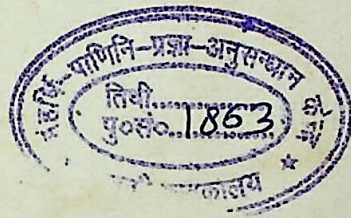 महर्षि-पाणिनि-प्रज्ञा-अनुसन्धान केन्द्र
तिथी..............
पु०सं०...1863...